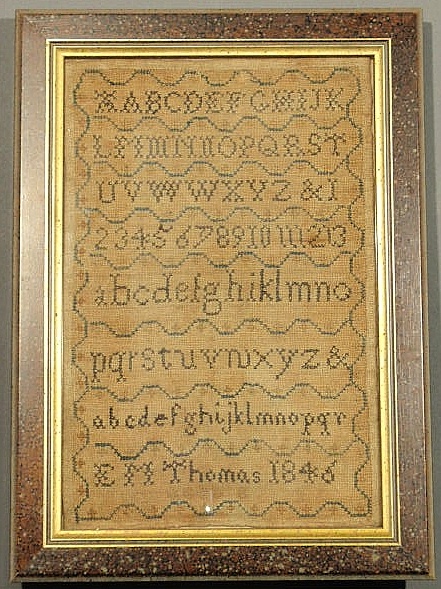 ABCDEFGHIJK
LMNOPQRST
UVWWXYZ&1
2345678910111213
abcdefghiklmno
pqrstuvwxyz&
abcdefghijklmnopqr
EM Thomas 1846